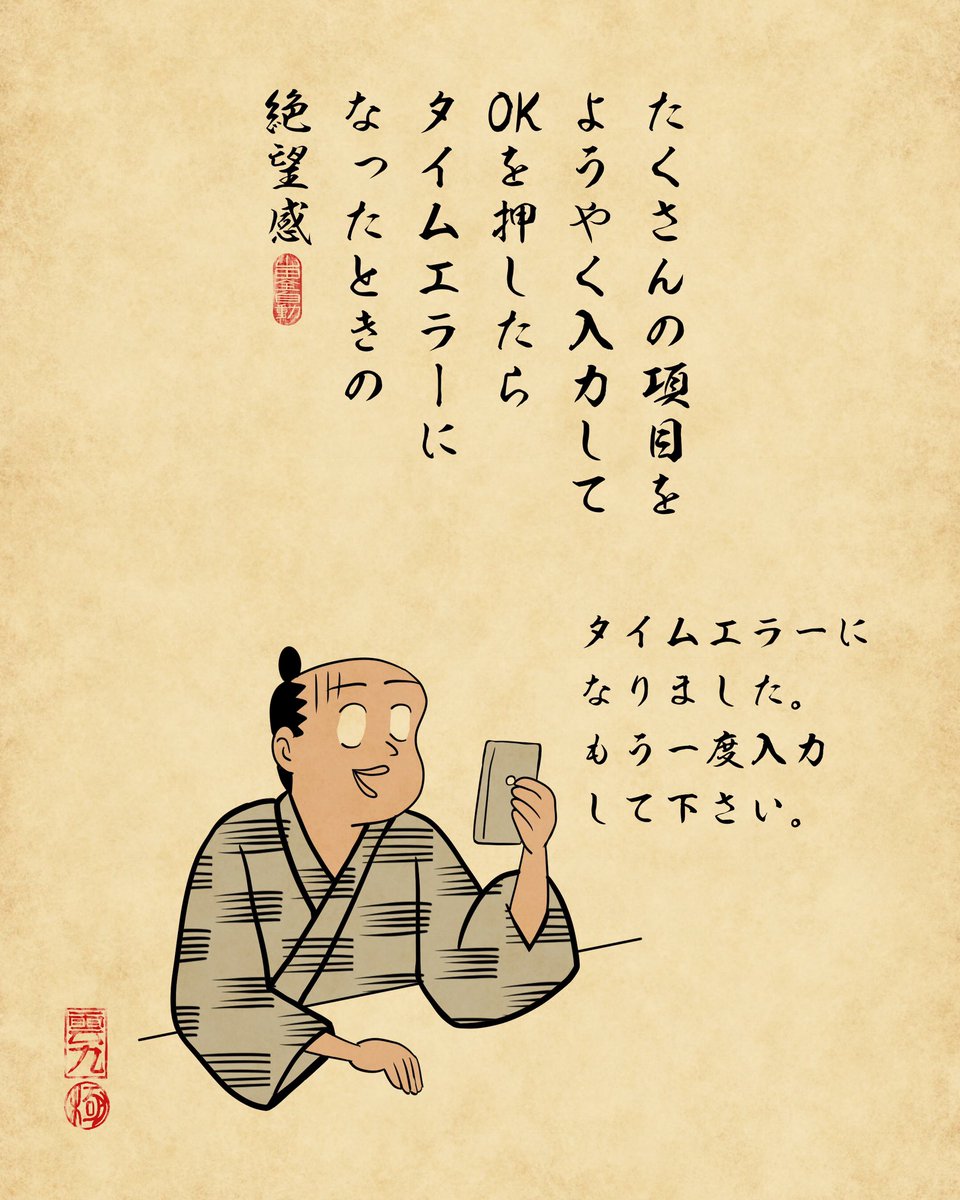 たくさんの項目を
ようやく入力して
OKを押したら
タイムエラーに
なったときの
絶望感
タイムエラーに
なりました。
もう一度入力
して下さい。